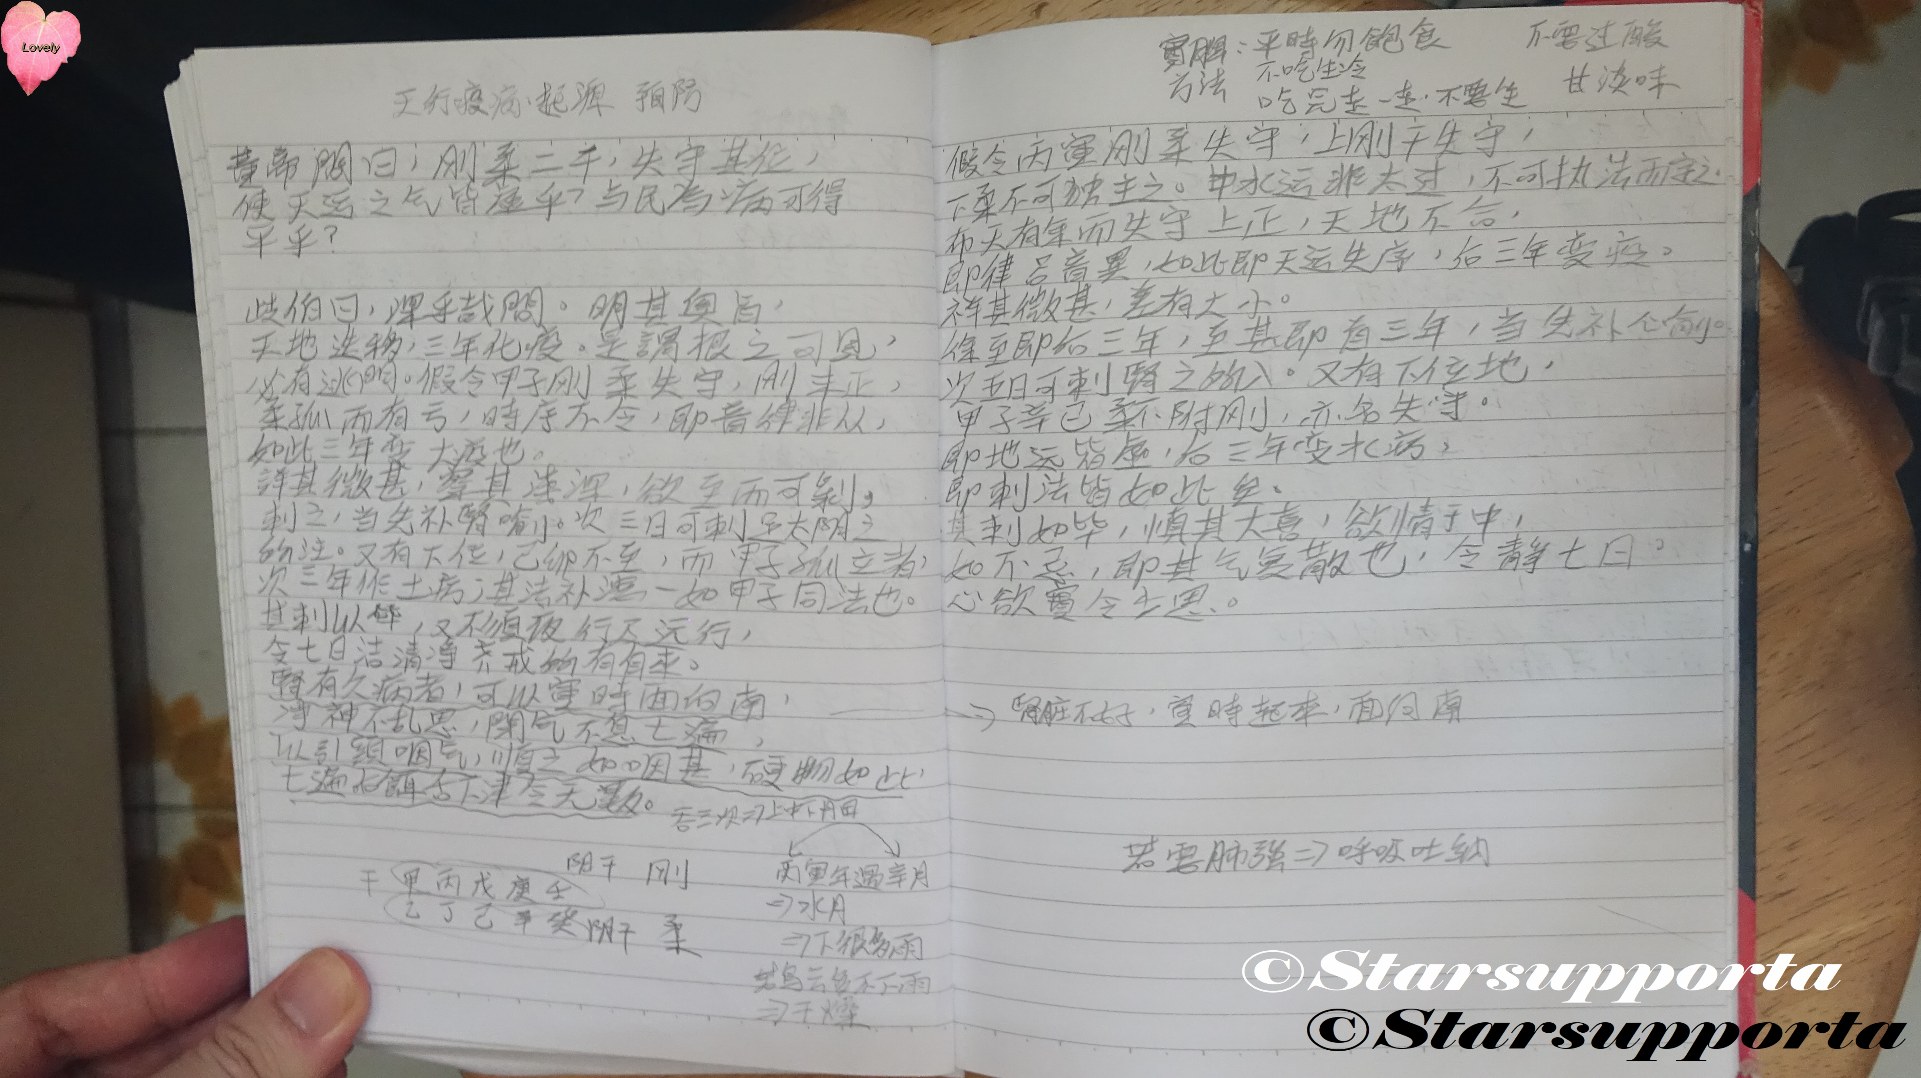 Lovely
天行疫病起源 預防
黃帝問曰，刚柔二干，失守其位，
使天运之气皆虛乎？与民為病可得
平乎？
岐伯曰，深乎哉問。明其奧旨，
天地迭移，三年化疫。是謂根之可見，
必有逃門。假令甲子刚柔失守，刚未正，
柔孤而有亏，時序不令，即音律非从，
如此三年变大疫也。
詳其微甚，察其淺深，欲至而可刺，
刺之，当先补腎俞。次三日可刺足太阴之
所注。又有下位，己卯不至，而甲子孤立者，
次三年作土疠；其法补瀉一如甲子同法也。
其刺以毕，又不須夜行及远行，
令七日洁清淨齐戒所有自來。
腎有久病者，可以寅時面向南，
淨神不乱思，閉气不息七遍，
以引頸咽气，順之如咽甚，硬物如此
七遍后餌舌下津令无数。
舌三次⇒上中下丹田
干 甲丙戊庚壬 阴干 刚
乙丁己辛癸 阴干 柔
丙寅年遇辛月
⇒水月
⇒下很多雨
若烏云多不下雨
⇒干燥
實脾：平時勿飽食 不要过酸
方法 不吃生冷 甘淡味
吃完走一走，不要坐
假令丙寅刚柔失守，上刚干失守，
下柔不可独主之。中水运非太过，不可执法而定之。
布天有余而失守上正，天地不合，
即律吕音異，如此即天运失序，后三年变疫。
詳其微甚，差有大小。
徐至即后三年，至甚即首三年，当先补心俞。
次五日可刺腎之所入。又有下位地，
甲子辛巳柔不附刚，亦名失守。
即地运皆虛，后三年变水疠，
即刺法皆如此矣。
其刺如毕，慎其大喜，欲情于中，
如不忌，即其气复散也，令静七日。
心欲實令少思。
⇒腎脏不好，寅時起來，面向南
若要肺強⇒呼吸吐納
©Starsupporta
©Starsupporta